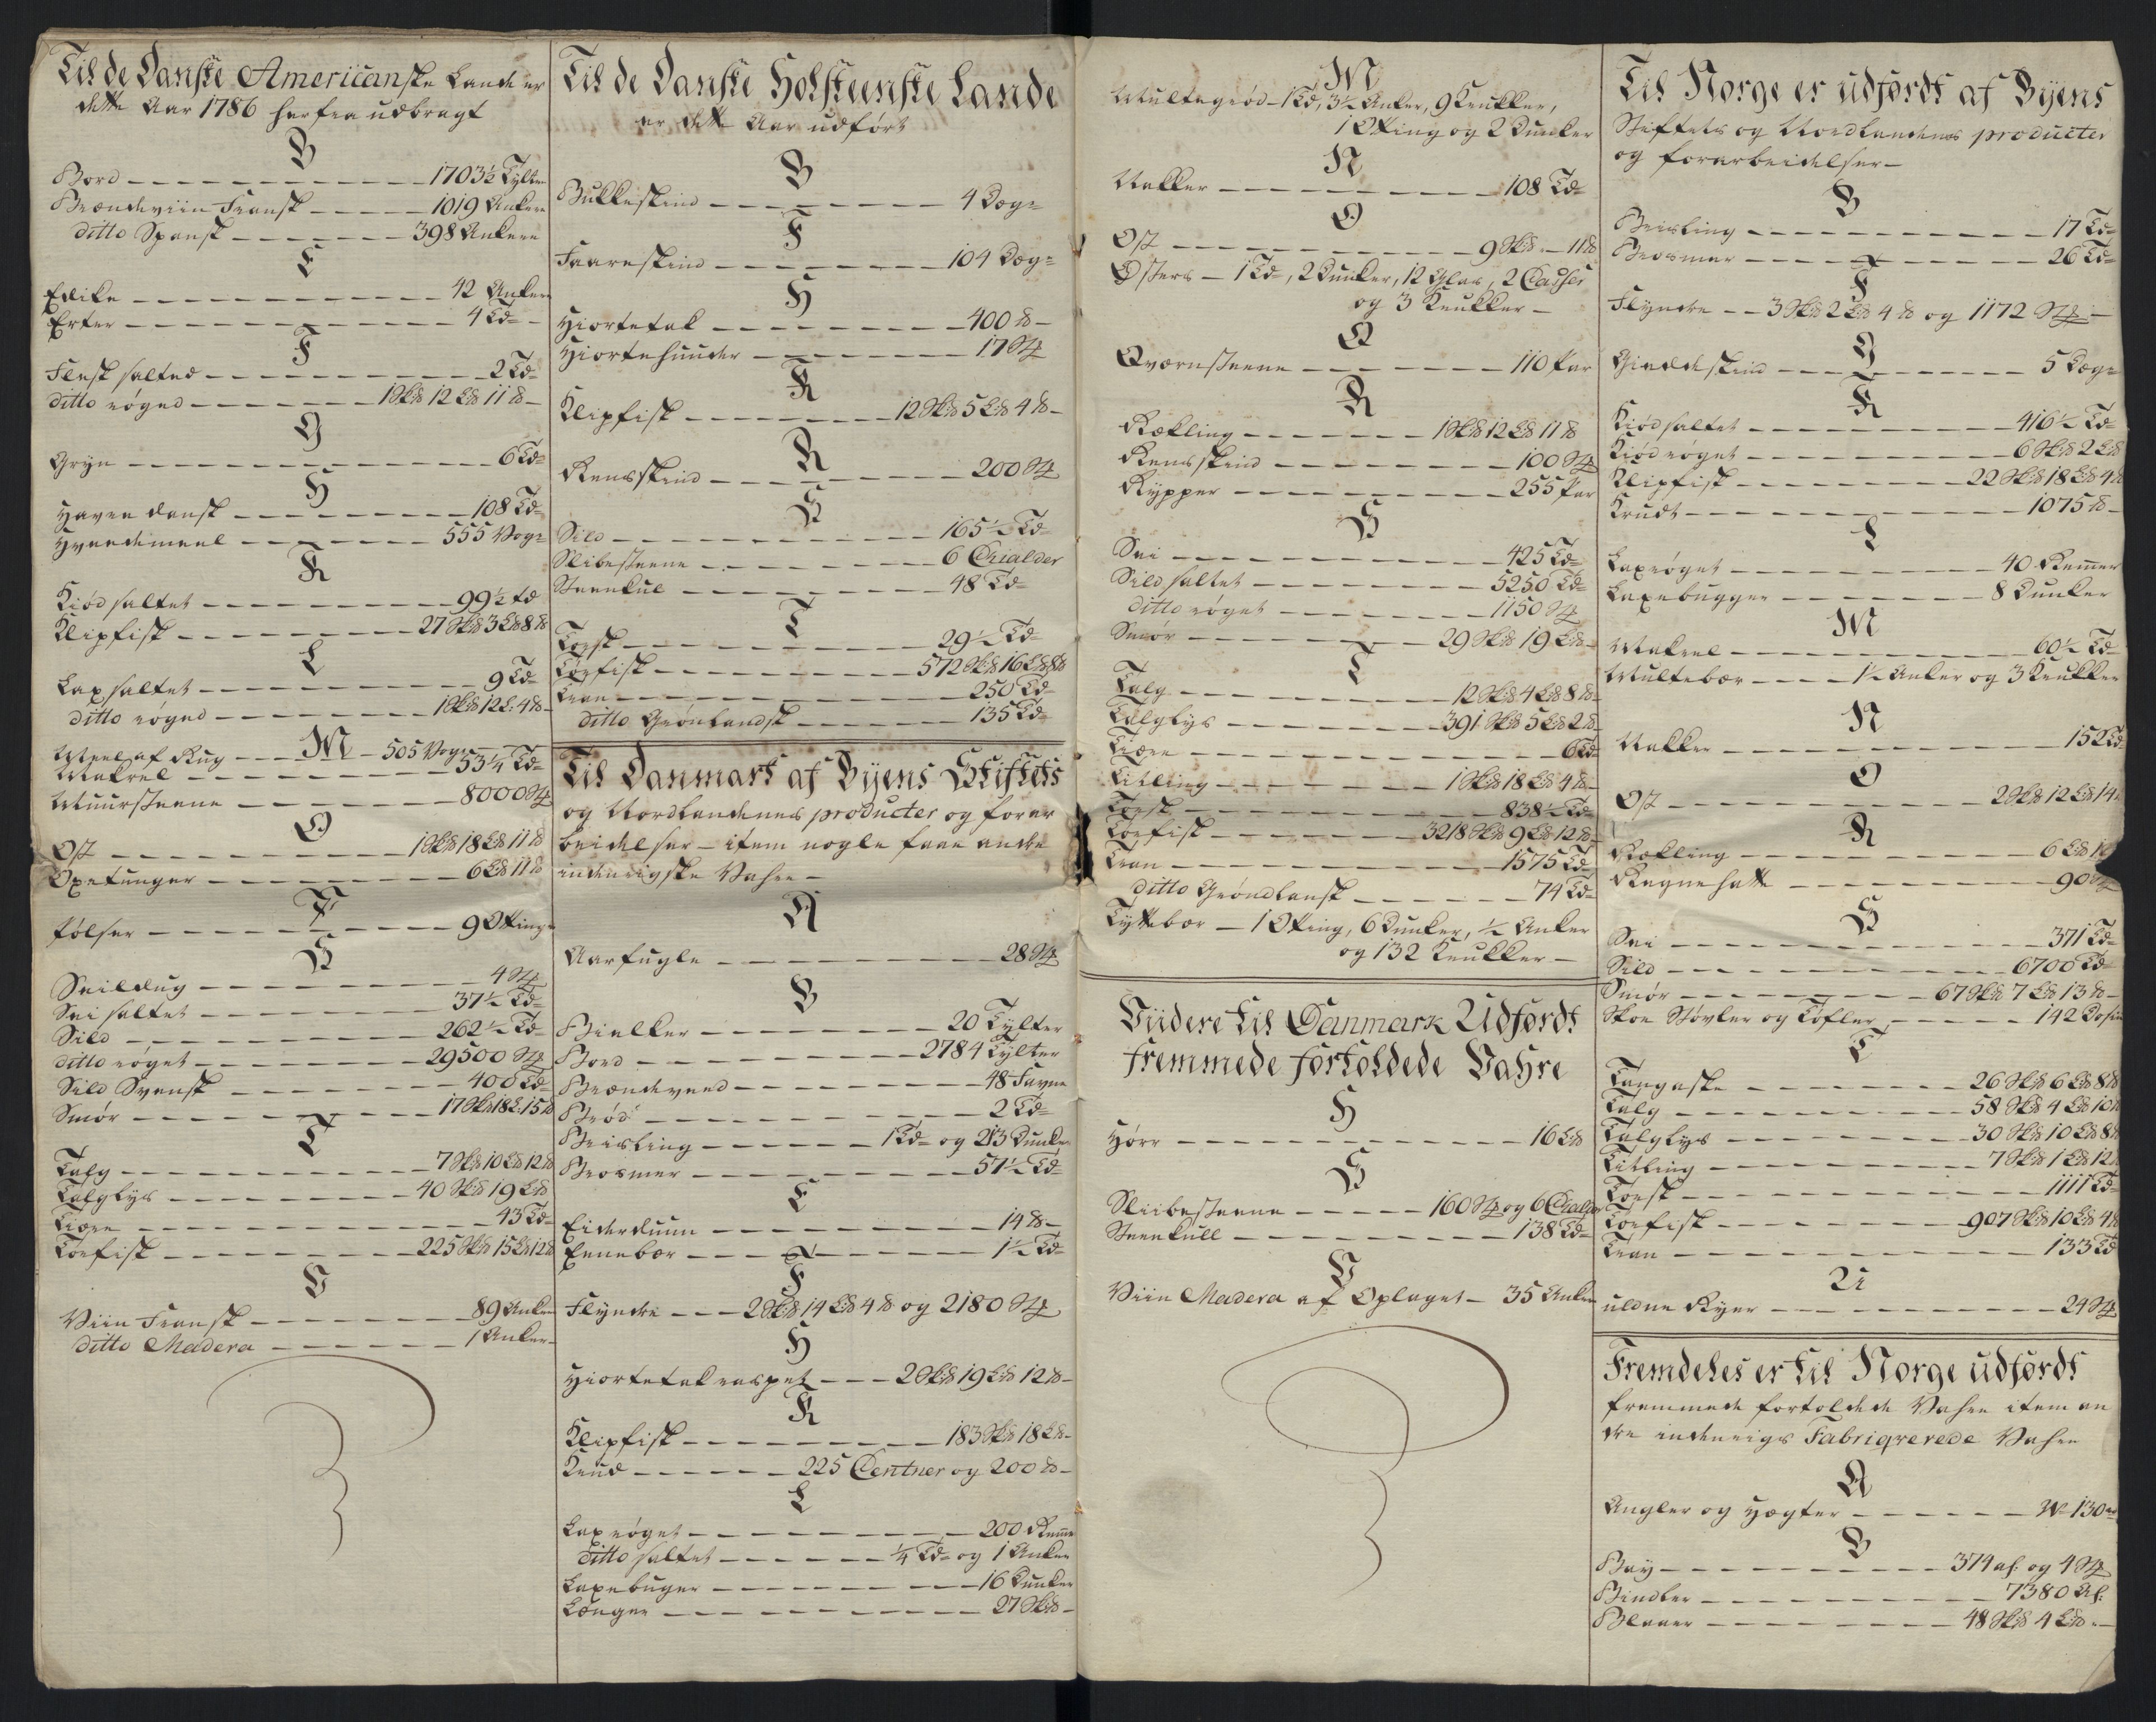 Til de Danske Americanske Lande er
dette Aar 1786 herfra udbragt
B
Bord 1703½ Tylter
Brændeviin Fransk 1019 Ankere
ditto Spansk 398 Ankere
E
Edike 42 Ankere
Erter 4 Td=
F
Flesk salted 2 Td=
ditto røged 1 Sk℔ 12 L℔ 11 ℔
G
Gryn 6 Td=
H
Havre dansk 108 Td=
Hvedemeel 555 Vog=
K
Kiød saltet 99½ td
Klipfisk 27 Sk℔ 3 L℔ 8 ℔
L
Lax saltet 9 Td=
ditto røged 1 Sk℔ 12 L: 4 ℔
M
Meel af Rug 505 Vog=
Makrel 53¼ Td=
Muursteene 8000 Stk
O
Ost 1 Sk℔ 18 L℔ 11 ℔
Oxetunger 6 L℔ 11 ℔
P
Pølser 9 Otting=
S
Seildug 4 Stk
Sei saltet 37½ Td=
Sild 262½ Td=
ditto røget 29500 Stk
Sild Svensk 400 Td=
Smør 17 Sk℔ 18 L: 15 ℔
T
Talg 7 Sk℔ 10 L℔ 12 ℔
Talglys 40 Sk℔ 19 L℔
Tiære 43 Td=
Tørfisk 225 Sk℔ 15 L℔ 12 ℔
V
Viin Fransk 89 Anker
ditto Madera 1 Anker
Til de Danske Holsteenske Lande
er dette Aar udført
B
Bukkeskind 4 Deg=
F
Faareskind 104 Deg=
H
Hiortetak 400 ℔
Hiortehuuder 17 Stk
K
Klipfisk 12 Sk℔ 5 L℔ 4 ℔
R
Rensskind 200 Stk
S
Sild 165½ Td=
Slibesteene 6 Chialder
Steenkul 48 Td=
T
Torsk 29½ Td=
Tørfisk 572 Sk℔ 16 L℔ 8 ℔
Tran 250 Td=
ditto Grønlandsk 135 Td=
Til Danmark af Byens Stiftets
og Nordlandenes producter og forar
beidelser – item nogle faae andre
indenrigske Vahre –
A
Aarfugle 28 Stk
B
Bielker 20 Tylter
Bord 2784 Tylter
Brændeveed 48 Favne
Brød 2 Td=
Brisling 1 Td= og 213 Dunker
Brosmer 57½ Td=
E
Eiderduun 14 ℔
Enebær 1½ Td=
F
Flyndre 2 Sk℔ 14 L℔ 4 ℔ og 2180 Stk
H
Hiortetak raspet 2 Sk℔ 19 L℔ 12 ℔
K
Klipfisk 183 Sk℔ 18 L℔
Krud 225 Centner og 200 ℔
L
Lax røget 200 Remmer
ditto saltet ¼ Td= og 1 Anker
Laxebuger 16 Dunker
Længer 27 Sk℔
M
Multegrød 1 Td, 3½ Anker, 9 Krukker,
1 Otting og 2 Dunker
N
Nakker 108 Td=
O
Ost 9 Sk℔ 11 ℔
Østers 1 Td=, 2 Dunker, 12 Glas, 2 Casser
og 3 Krukker
Q
Qværnsteene 110 Par
R
Rækling 1 Sk℔ 12 L℔ 11 ℔
Rensskind 100 Stk
Rypper 255 Par
S
Sei 425 Td=
Sild saltet 5250 Td=
ditto røget 1150 Stk
Smør 29 Sk℔ 19 L℔
T
Talg 12 Sk℔ 4 L℔ 8 ℔
Talglys 391 Sk℔ 5 L℔ 2 ℔
Tiære 6 Td
Titling 1 Sk℔ 18 L℔ 4 ℔
Torsk 838½ Td=
Tørfisk 3218 Sk℔ 9 L℔ 12 ℔
Tran 1575 Td=
ditto Grøndlansk 74 Td=
Tyttebær 1 Otting, 6 Dunker, ½ Anker
og 132 Krukker
Viidere til Danmark Udførdt
fremmede fortoldede Vahre
H
Hørr 16 L℔
S
Sliibesteene 160 Stk og 6 Chialder
Steenkull 138 Td=
V
Viin Madera af Oplaget 35 Anker
Til Norge er udførdt af Byens
Stiftets og Nordlandenes producter
og forarbeidelser
B
Brisling 17 Td=
Brosmer 26 Td=
F
Flyndre 3 Sk℔ 2 L℔ 4 ℔ og 1172 Stk
G
Giedeskind 5 Deg=
K
Kiød saltet 416½ Td=
Kiød røget 6 Sk℔ 2 L℔
Klipfisk 22 Sk℔ 18 L℔ 4 ℔
Krudt 1075 ℔
L
Lax røget 40 Remmer
Laxebugger 8 Dunker
M
Makrel 60½ Td=
Multebær 1½ Anker og 3 Krukker
N
Nakker 152 Td
O
Ost 2 Sk℔ 12 L℔ 14
R
Rækling 6 L℔
Regnehatte 90 Stk
S
Sei 371 Td=
Sild 6700 Td=
Smør 67 Sk℔ 7 L℔ 13 ℔
Skoe Støvler og Tøfler 142 Dosin
T
Tangaske 26 Sk℔ 6 L℔ 8 ℔
Talg 58 Sk℔ 4 L℔ 10 ℔
Talglys 30 Sk℔ 10 L℔ 8 ℔
Titling 7 Sk℔ 1 L℔ 12
Torsk 1111 Td=
Tørfisk 907 Sk℔ 10 L℔ 4 ℔
Tran 133 Td
U
uldne Ryer 24 Stk
Fremdeles er til Norge udførdt
fremmede fortoldede Vahre item an
dre indenrigs Fabriqverede Vahre
A
Angler og Hægter
B
Bay 374 al. og 4 Stk
Bendler 7380 Al:
Blaaer 48 Sk℔ 4 L℔